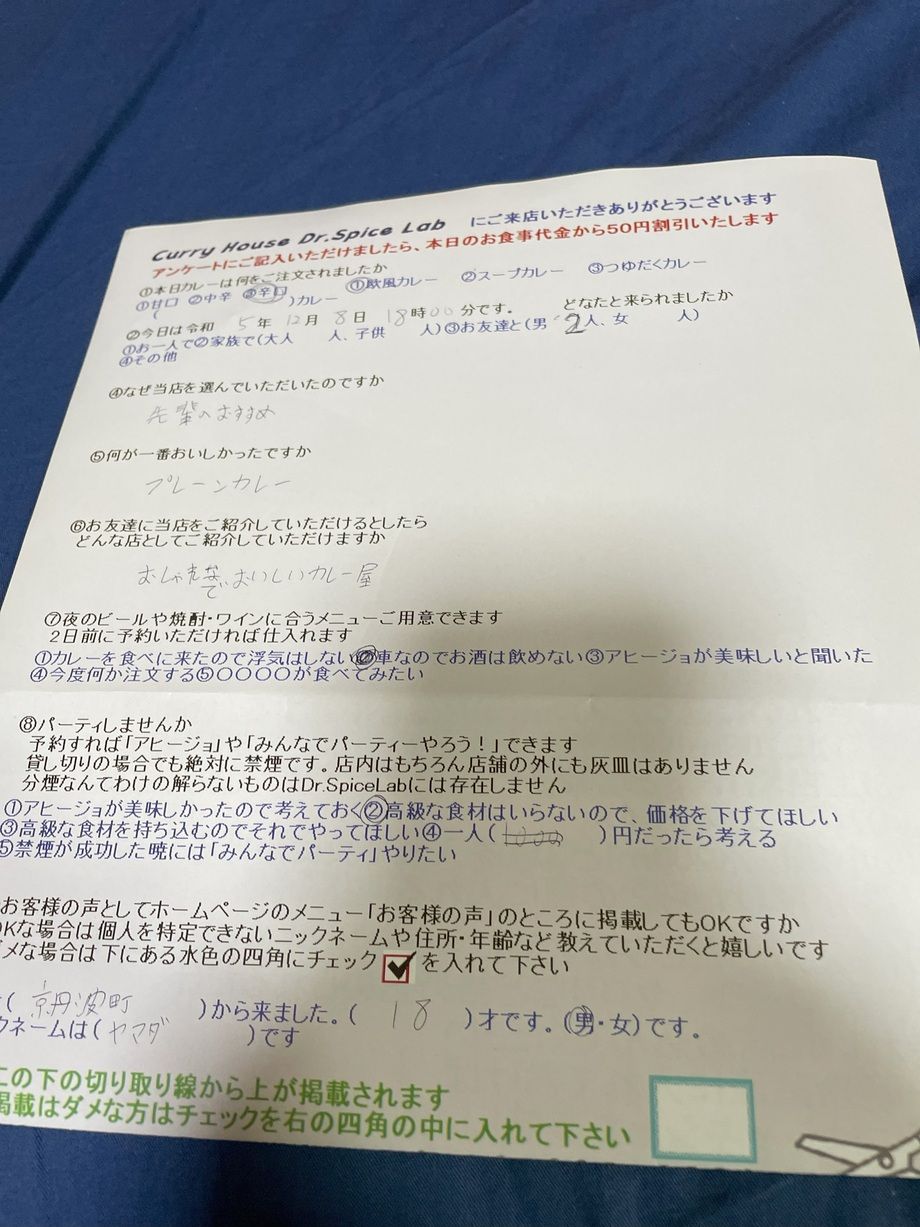 Curry House Dr.Spice Lab にご来店いただきありがとうございます
アンケートにご記入いただけましたら、本日のお食事代金から50円割引いたします
①本日カレーは何をご注文されましたか
①甘口 ②中辛 ③辛口 ①欧風カレー ②スープカレー ③つゆだくカレー
( )カレー
②今日は令和 5年 12月 8日 18時00分です。 どなたと来られましたか
①お一人で②家族で(大人 人、子供 人)③お友達と(男 2人、女 人)
④その他
④なぜ当店を選んでいただいたのですか
先輩のおすすめ
⑤何が一番おいしかったですか
プレーンカレー
⑥お友達に当店をご紹介していただけるとしたら
どんな店としてご紹介していただけますか
おしゃれなでおいしいカレー屋
⑦夜のビールや焼酎・ワインに合うメニューご用意できます
2日前に予約いただければ仕入れます
①カレーを食べに来たので浮気はしない②車なのでお酒は飲めない③アヒージョが美味しいと聞いた
④今度何か注文する⑤〇〇〇〇が食べてみたい
⑧パーティしませんか
予約すれば「アヒージョ」や「みんなでパーティーやろう!」できます
貸し切りの場合でも絶対に禁煙です。店内はもちろん店舗の外にも灰皿はありません
分煙なんてわけの解らないものはDr.SpiceLabには存在しません
①アヒージョが美味しかったので考えておく②高級な食材はいらないので、価格を下げてほしい
③高級な食材を持ち込むのでそれでやってほしい④一人(1000 )円だったら考える
⑤禁煙が成功した暁には「みんなでパーティ」やりたい
お客様の声としてホームページのメニュー「お客様の声」のところに掲載してもOKですか
OKな場合は個人を特定できないニックネームや住所・年齢など教えていただくと嬉しいです
ダメな場合は下にある水色の四角にチェック✓を入れて下さい
(京丹波町 )から来ました。( 18 )才です。(男・女)です。
クネームは(ヤマダ )です
この下の切り取り線から上が掲載されます
掲載はダメな方はチェックを右の四角の中に入れて下さい